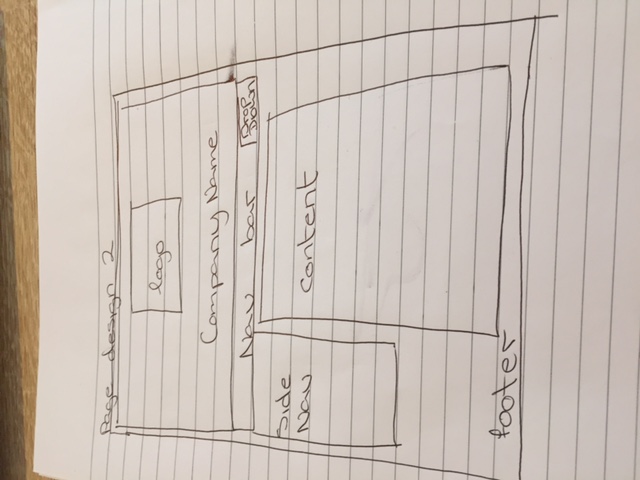 Page design 2
logo
Company Name
Nav bar
Drop
Down
Side
Nav
Content
footer